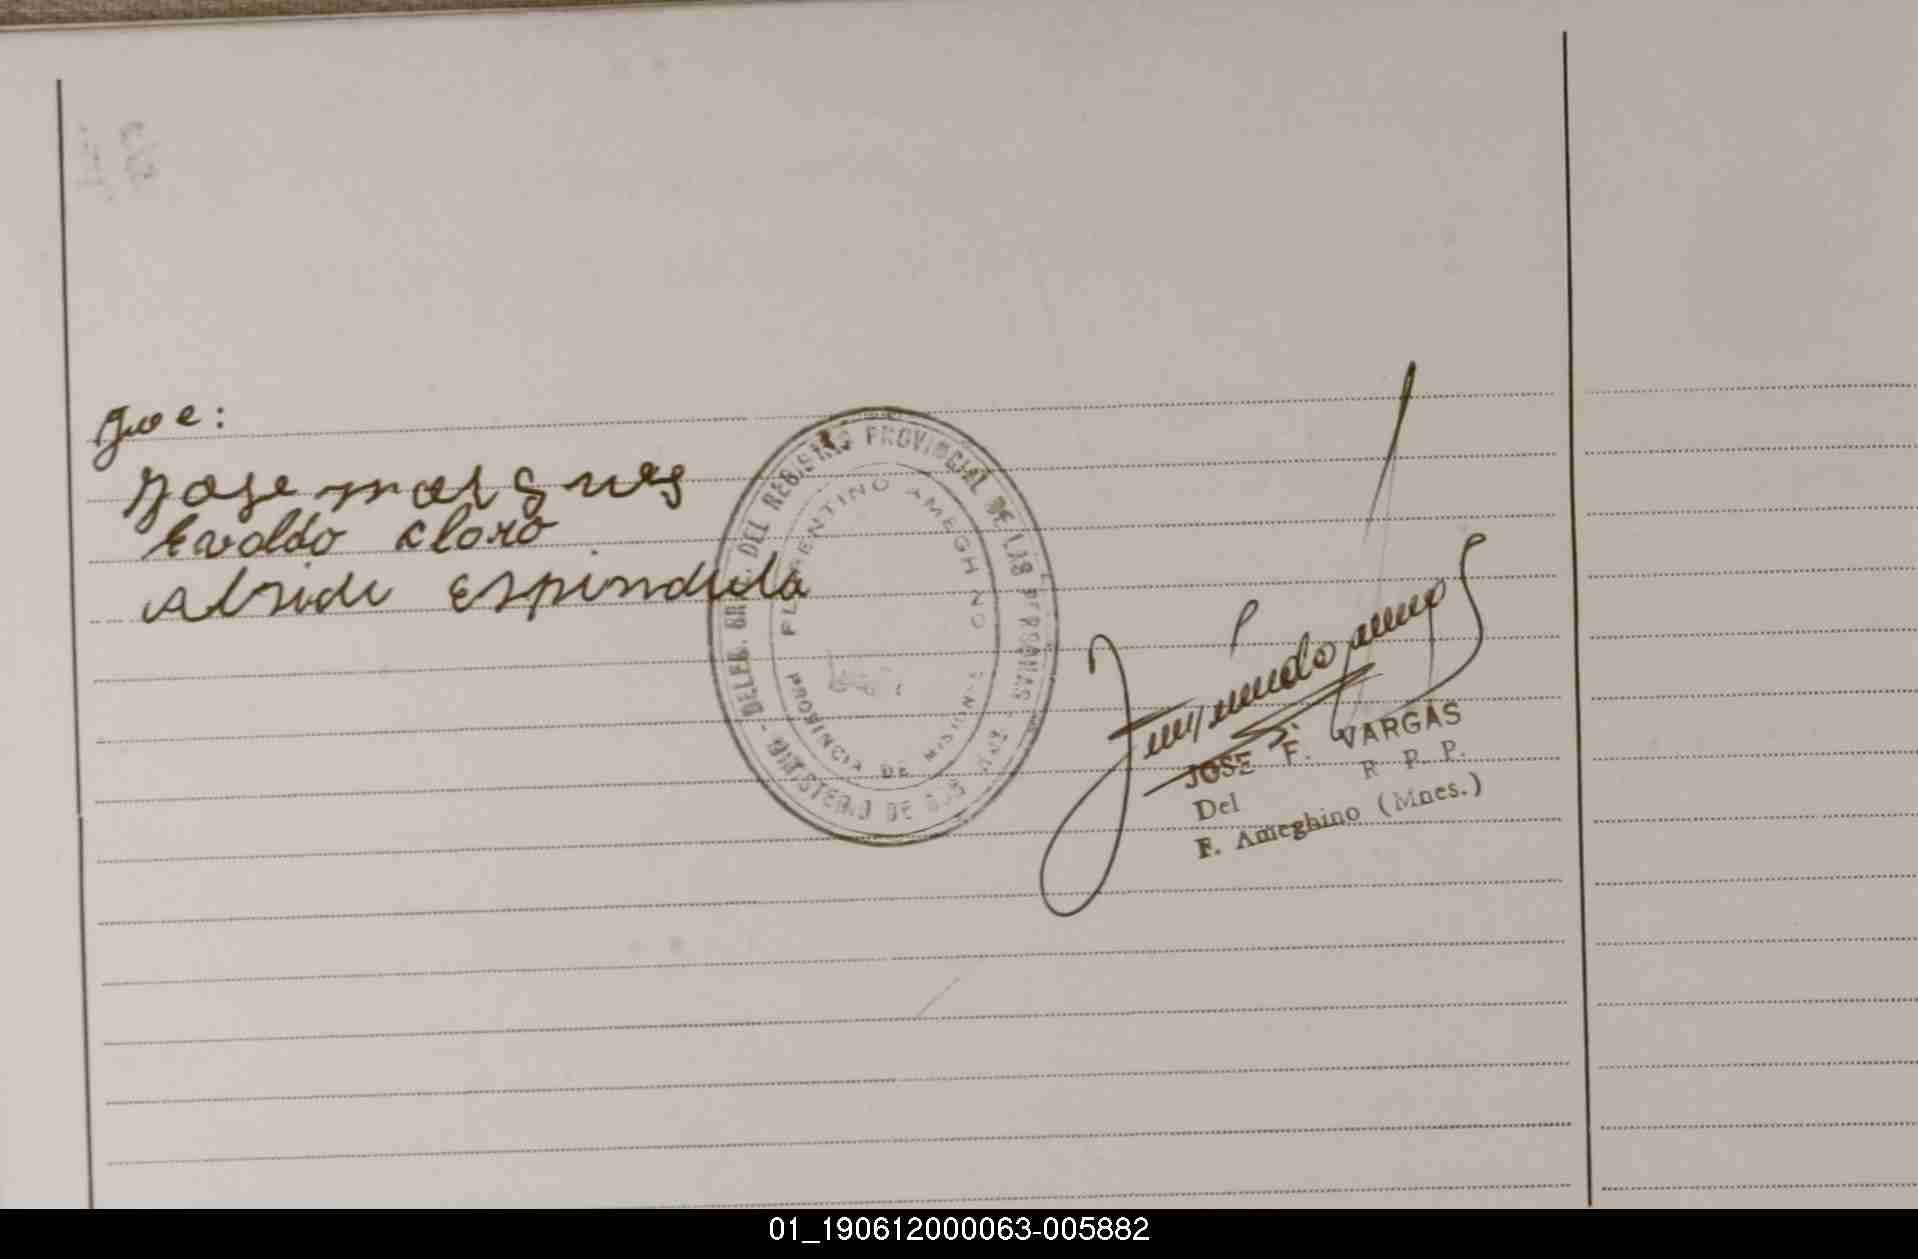 que:
Jose marques
Evaldo Claro
Alside espindula
DELEG. GRAL. DEL REGISTRO PROVINCIAL DE LAS PERSONAS
FLORENTINO AMEGHINO
PROVINCIA DE MISIONES
MINISTERIO DE GOB
JOSE F. VARGAS
Del R. P. P.
F. Ameghino (Mnes.)
01_190612000063-005882